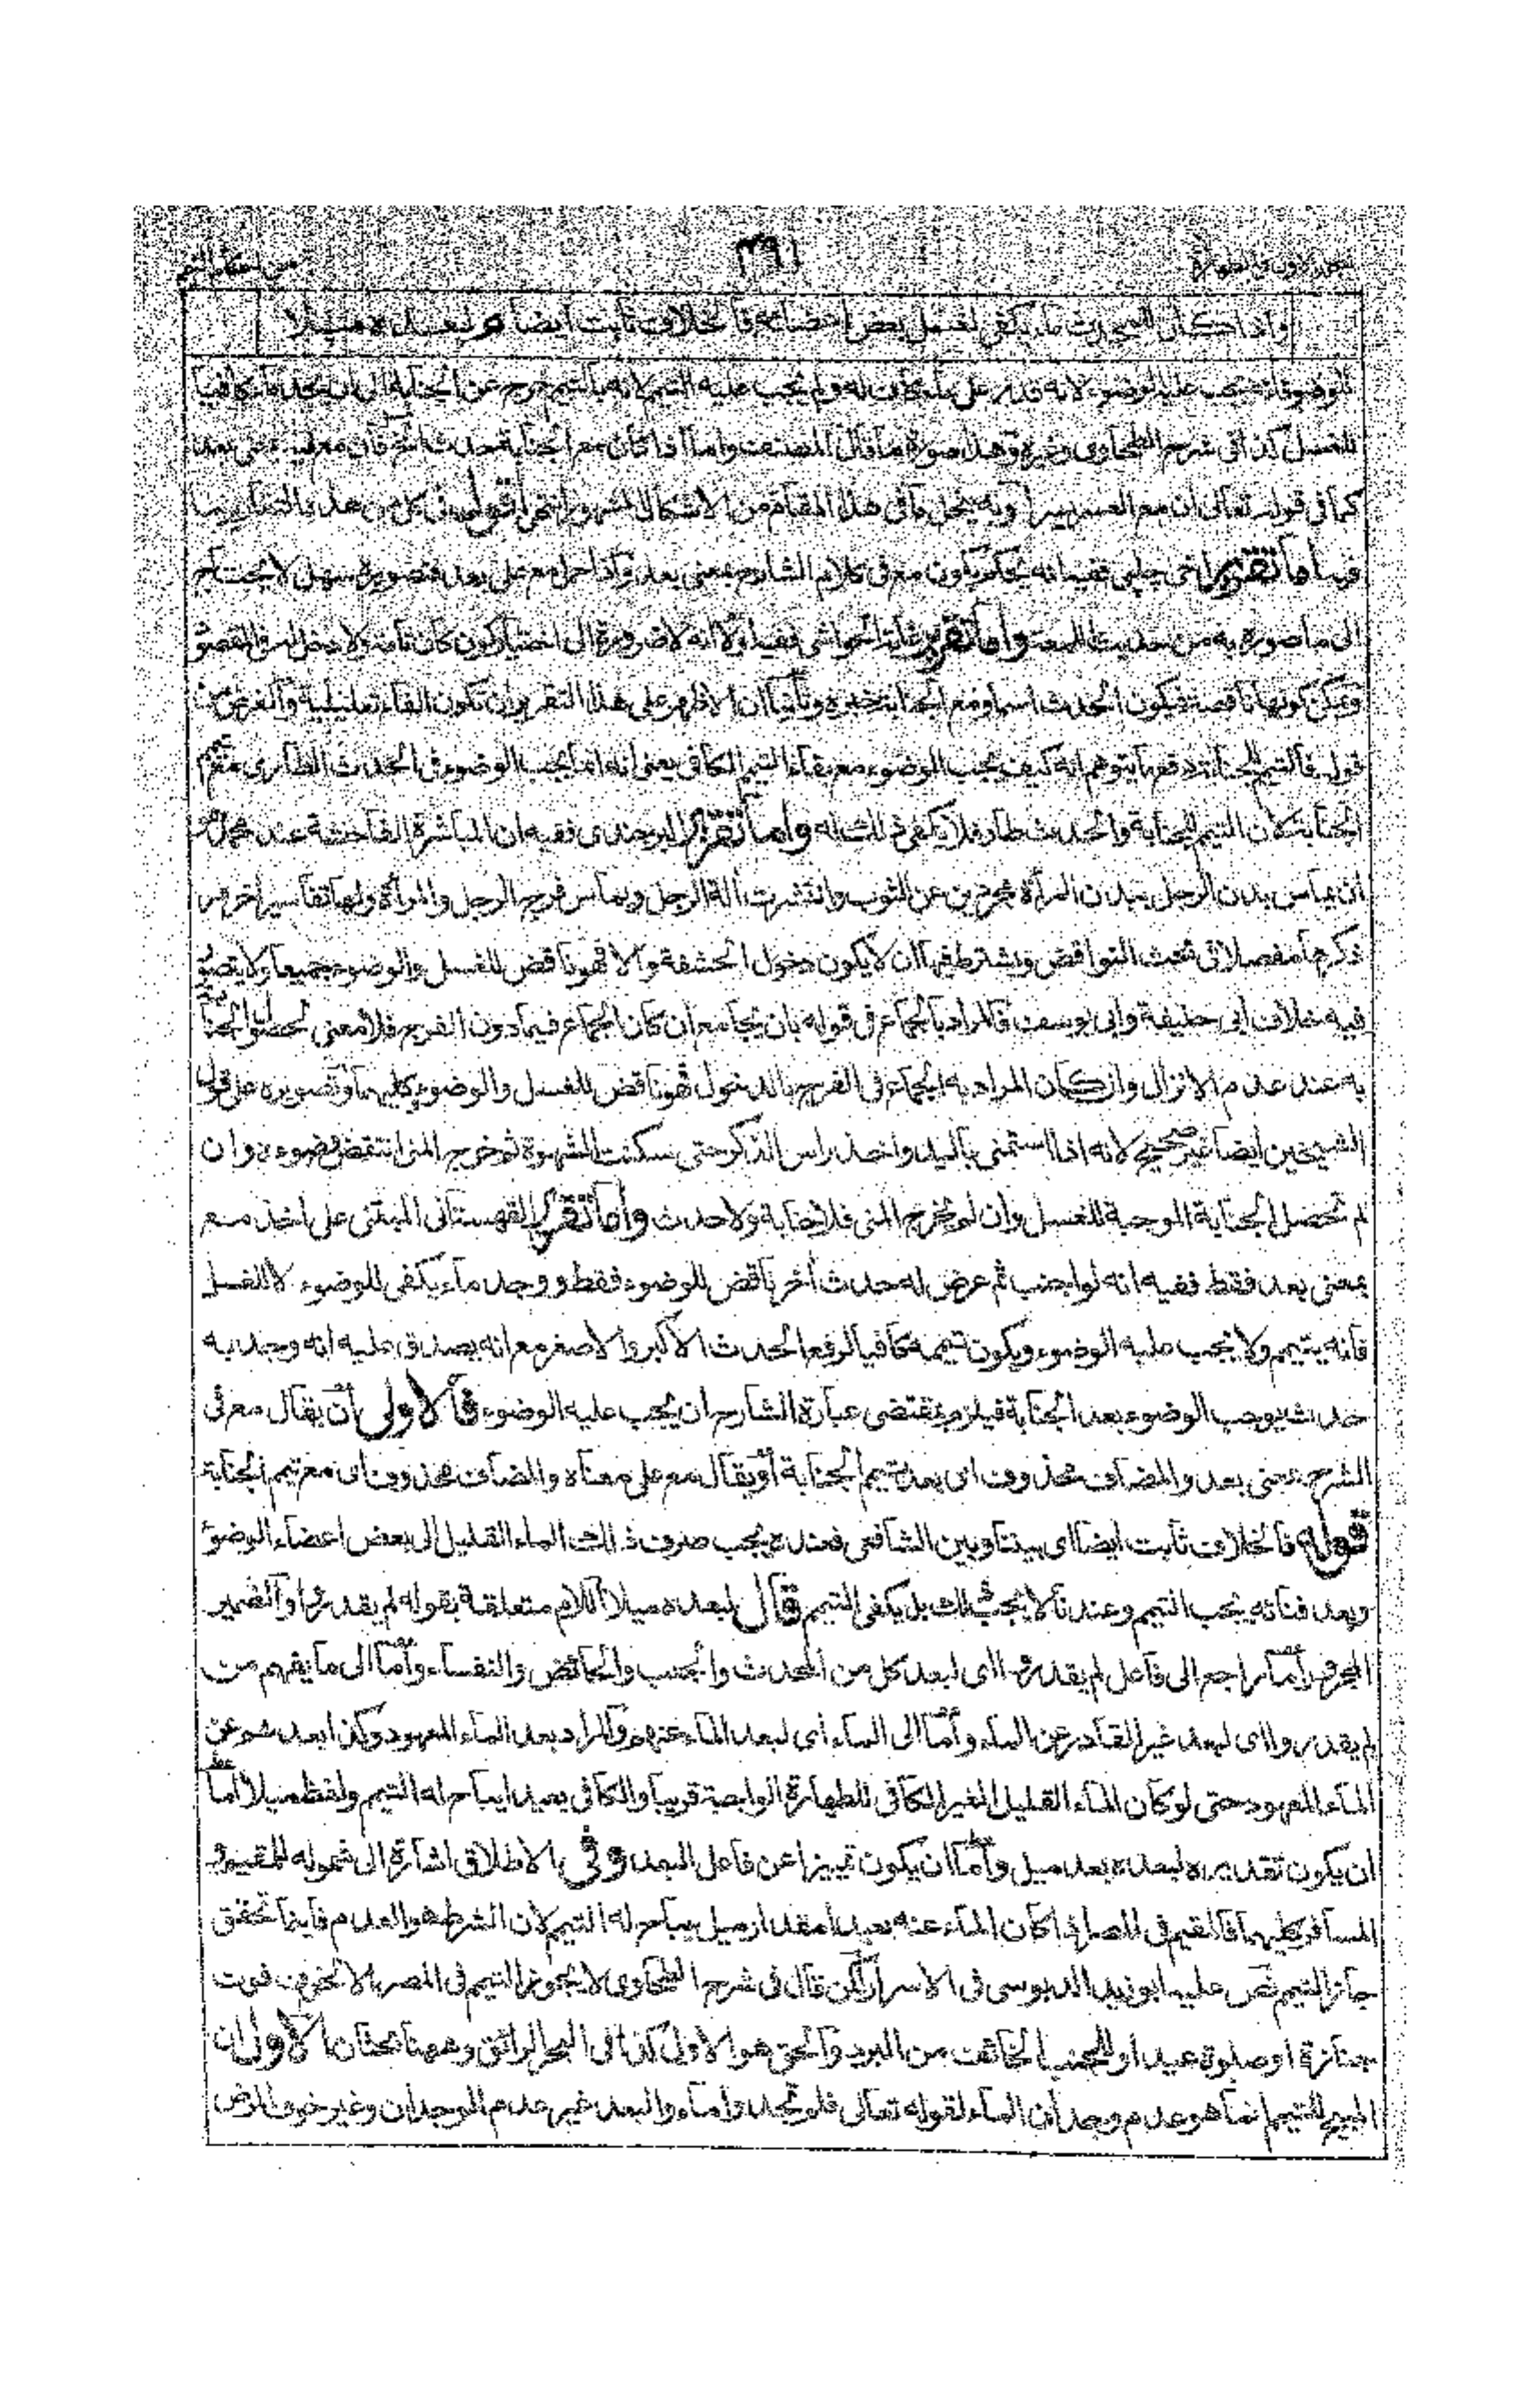 ٤٩١
واذا كان للمحدث ماء يكفى لغسل بعض اعضائه فالخلاف ثابت ايضا هر لبعده ميلا
للوضوء فانه يجب عليه الوضوء لانه قدر على ماء كاف له ولم يجب عليه التيمم لانه بالتيمم خرج عن الجنابة الى ان يجد ماء كافيا
للغسل كذا فى شرح الطحاوى وغيره وهذا صورة ما قال المصنف واما اذا كان مع الجنابة حدث الخ فان مع فيه بمعنى بعد
كما فى قوله تعالى ان مع العسر يسرا وبه ينحل ما فى هذا المقام من الاشكال المشهور انتهى اقول فى كل من هذه التقارير
اما تقرير اخى چلپى ففيه انه يكون مع فى كلام الشارح بمعنى بعد واذا حمل مع على بعد فتصويره سهل لا يحتاج
الى ما صوره به من حديث اللمعة واما تقرير الحواشى ففيه اولا انه لا ضرورة الى اختيار كون كان تامة ولا دخل له فى المقصود
ويمكن كونها ناقصة فيكون الحدث اسما ومع الجنابة خبره وثانيا ان الاظهر على هذا التقرير ان تكون الفاء تعليلية والغرض من
قوله فالتيمم للجنابة دفع ما يتوهم انه كيف يجب الوضوء مع بقاء التيمم الكافى يعنى انه انما يجب الوضوء فى الحدث الطارى
الجنابة لان التيمم للجنابة والحدث طار فلا يكفى ذلك له واما تقرير البرجندى ففيه ان المباشرة الفاحشة عند
ان يماس بدن الرجل ببدن المرأة مجردين عن الثوب وانتشرت الة الرجل ويماس فرج الرجل والمرأة ولها تفاسير اخر مر
ذكرها مفصلا فى بحث النواقض ويشترط فيها ان لا يكون دخول الحشفة والا فهو ناقض للغسل والوضوء جميعا ولا يتصور
فيه خلاف ابى حنيفة وابى يوسف فالمراد بالجماع فى قوله بان يجامع ان كان الجماع فيما دون الفرج فلا معنى لحصول الجنابة
به عند عدم الانزال وان كان المراد به الجماع فى الفرج بالدخول فهو ناقض للغسل والوضوء كليهما وتصويره على قول
الشيخين ايضا غير صحيح لانه اذا استمنى باليد واخذ راس الذكر حتى سكنت الشهوة ثم خرج المنى انتقض وضوءه وان
لم تحصل الجنابة الموجبة للغسل وان لم يخرج المنى فلا جنابة ولا حدث واما تقرير القهستانى المبتنى على اخذ مع
بمعنى بعد فقط ففيه انه لو اجنب ثم عرض له حدث آخر ناقض للوضوء فقط ووجد ماء يكفى للوضوء لا للغسل
فانه يتيمم ولا يجب عليه الوضوء ويكون تيممه كافيا لرفع الحدث الاكبر والاصغر مع انه يصدق عليه انه وجد به
حدث يوجب الوضوء بعد الجنابة فيلزم بمقتضى عبارة الشارح ان يجب عليه الوضوء فالاولى ان يقال مع فى
الشرح بمعنى بعد والمضاف محذوف اى بعد تيمم الجنابة او يقال مع على معناه والمضاف محذوف اى مع تيمم الجنابة
قوله فالخلاف ثابت ايضا اى بيننا وبين الشافعى فعنده يجب صرف ذلك الماء القليل الى بعض اعضاء الوضوء
وبعد فنائه يجب التيمم وعندنا لا يجب ذلك بل يكفى التيمم قال لبعده ميلا اللام متعلقة بقوله لم يقدروا والضمير
المجرور اما راجع الى فاعل لم يقدروا اى لبعد كل من المحدث والجنب والحائض والنفساء واما الى ما يفهم من
لم يقدروا اى لبعد غير القادر عن الماء واما الى الماء اى لبعد الماء عنهم والمراد بعد الماء المعهود وكذا بعدهم عن
الماء المعهود حتى لو كان الماء القليل الغير الكافى للطهارة الواجبة قريبا والكافى بعيدا يباح له التيمم ولفظ ميلا اما
ان يكون تقديره لبعده بعد ميل واما ان يكون تمييزا عن فاعل البعد وفى الاطلاق اشارة الى شموله للمقيم و
المسافر كليهما فالمقيم فى المصر اذا كان الماء عنه بعيدا مقدار ميل يباح له التيمم لان الشرط هو العدم فاينما تحقق
جاز التيمم نص عليه ابو زيد الدبوسى فى الاسرار لكن قال فى شرح الطحاوى لا يجوز التيمم فى المصر الا لخوف فوت
جنازة او صلوة عيد او للجنب الخائف من البرد والحق هو الاول كذا فى البحر الرائق وههنا بحثان الاول ان
المبيح للتيمم انما هو عدم وجدان الماء لقوله تعالى فلم تجدوا ماء والبعد غير عدم الوجدان وغير خوف المرض